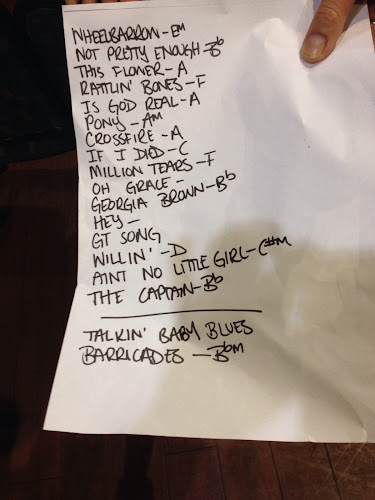 WHEELBARROW - Em
NOT PRETTY ENOUGH - Bb
THIS FLOWER - A
RATTLIN' BONES - F
IS GOD REAL - A
PONY - Am
CROSSFIRE - A
IF I DIED - C
MILLION TEARS - F
OH GRACE -
GEORGIA BROWN - Bb
HEY -
GT SONG
WILLIN' - D
AINT NO LITTLE GIRL - C#m
THE CAPTAIN - Bb
TALKIN' BABY BLUES
BARRICADES - Bbm